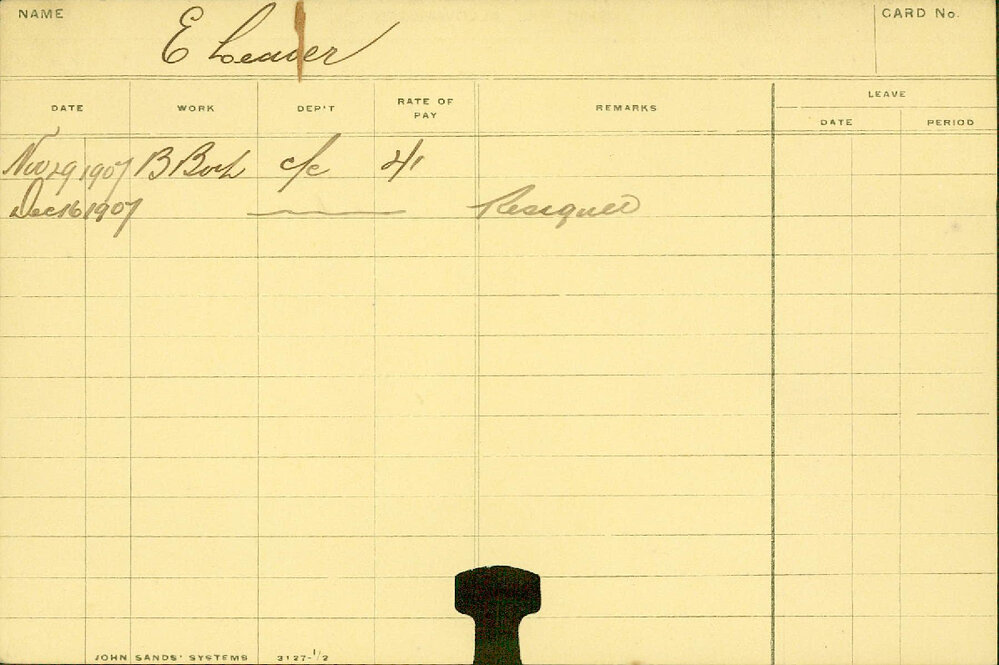 NAME
E Leaver
CARD No.
DATE WORK DEP'T RATE OF PAY REMARKS LEAVE
DATE PERIOD
Nov 29 1907 B c/c 4/
Dec 16 1907 Resigned
JOHN SANDS' SYSTEMS 3127-1/2